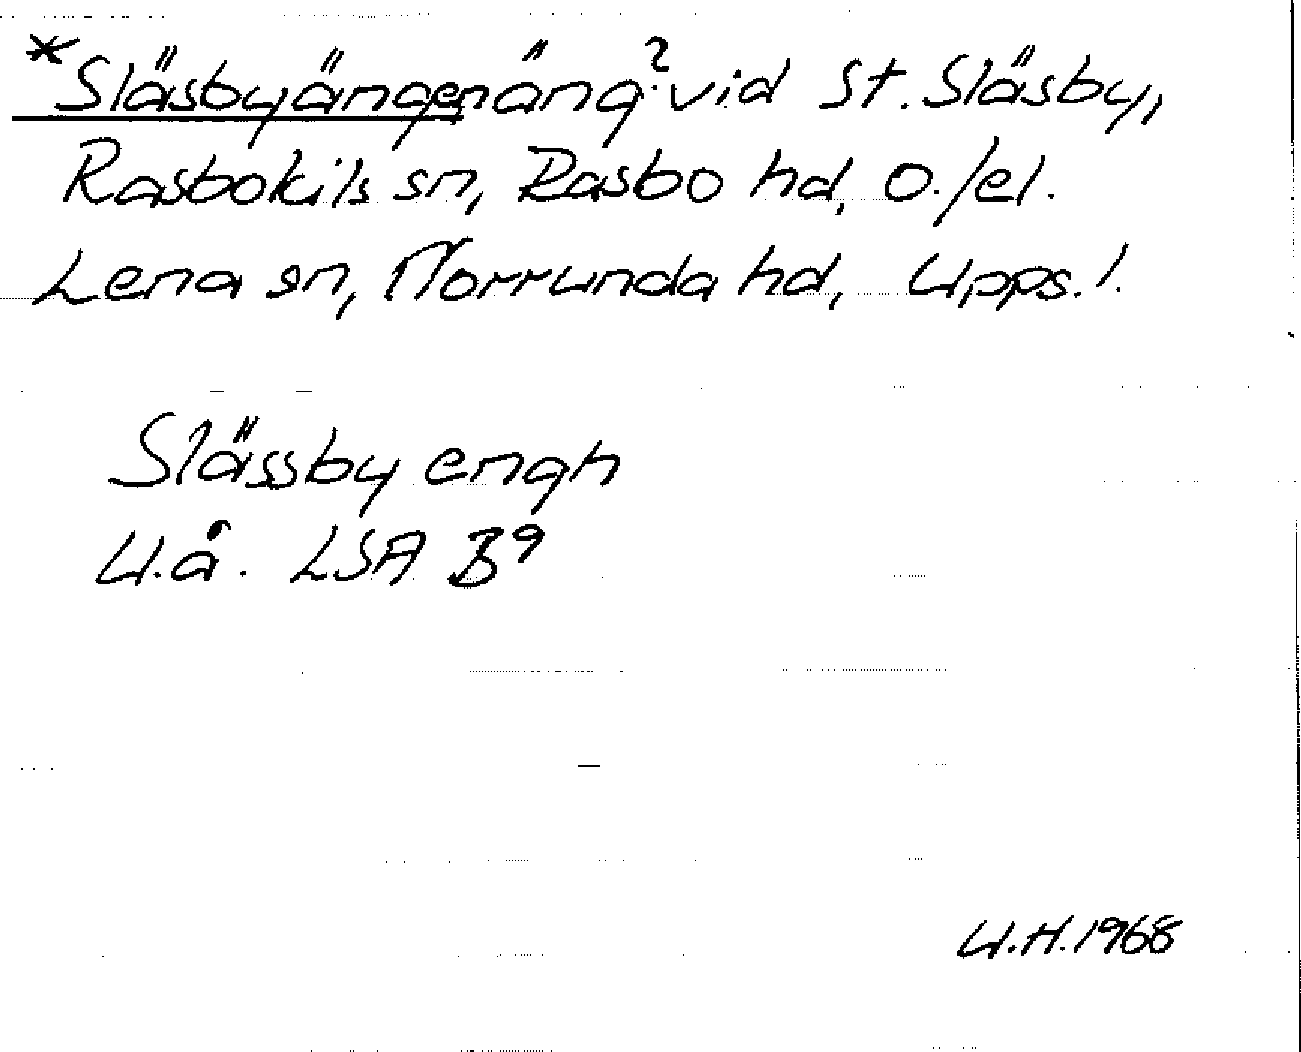 *Släsbyängen äng? vid St. Släsby,
Rasbokils sn, Rasbo hd, o./el.
Lena sn, Norrunda hd, Upps. l.
Slässby engh
U.å. LSA B9
U.H. 1968